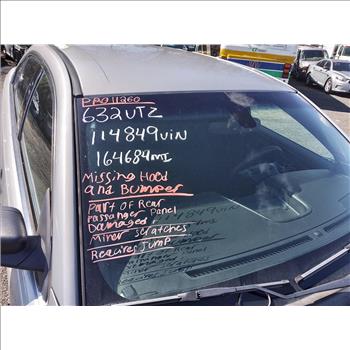 PPO11260
632UTZ
114849VIN
164684MI
Missing Hood
and Bumper
Part of Rear
Passanger Panel
Damaged
Minor Scratches
Requires Jump